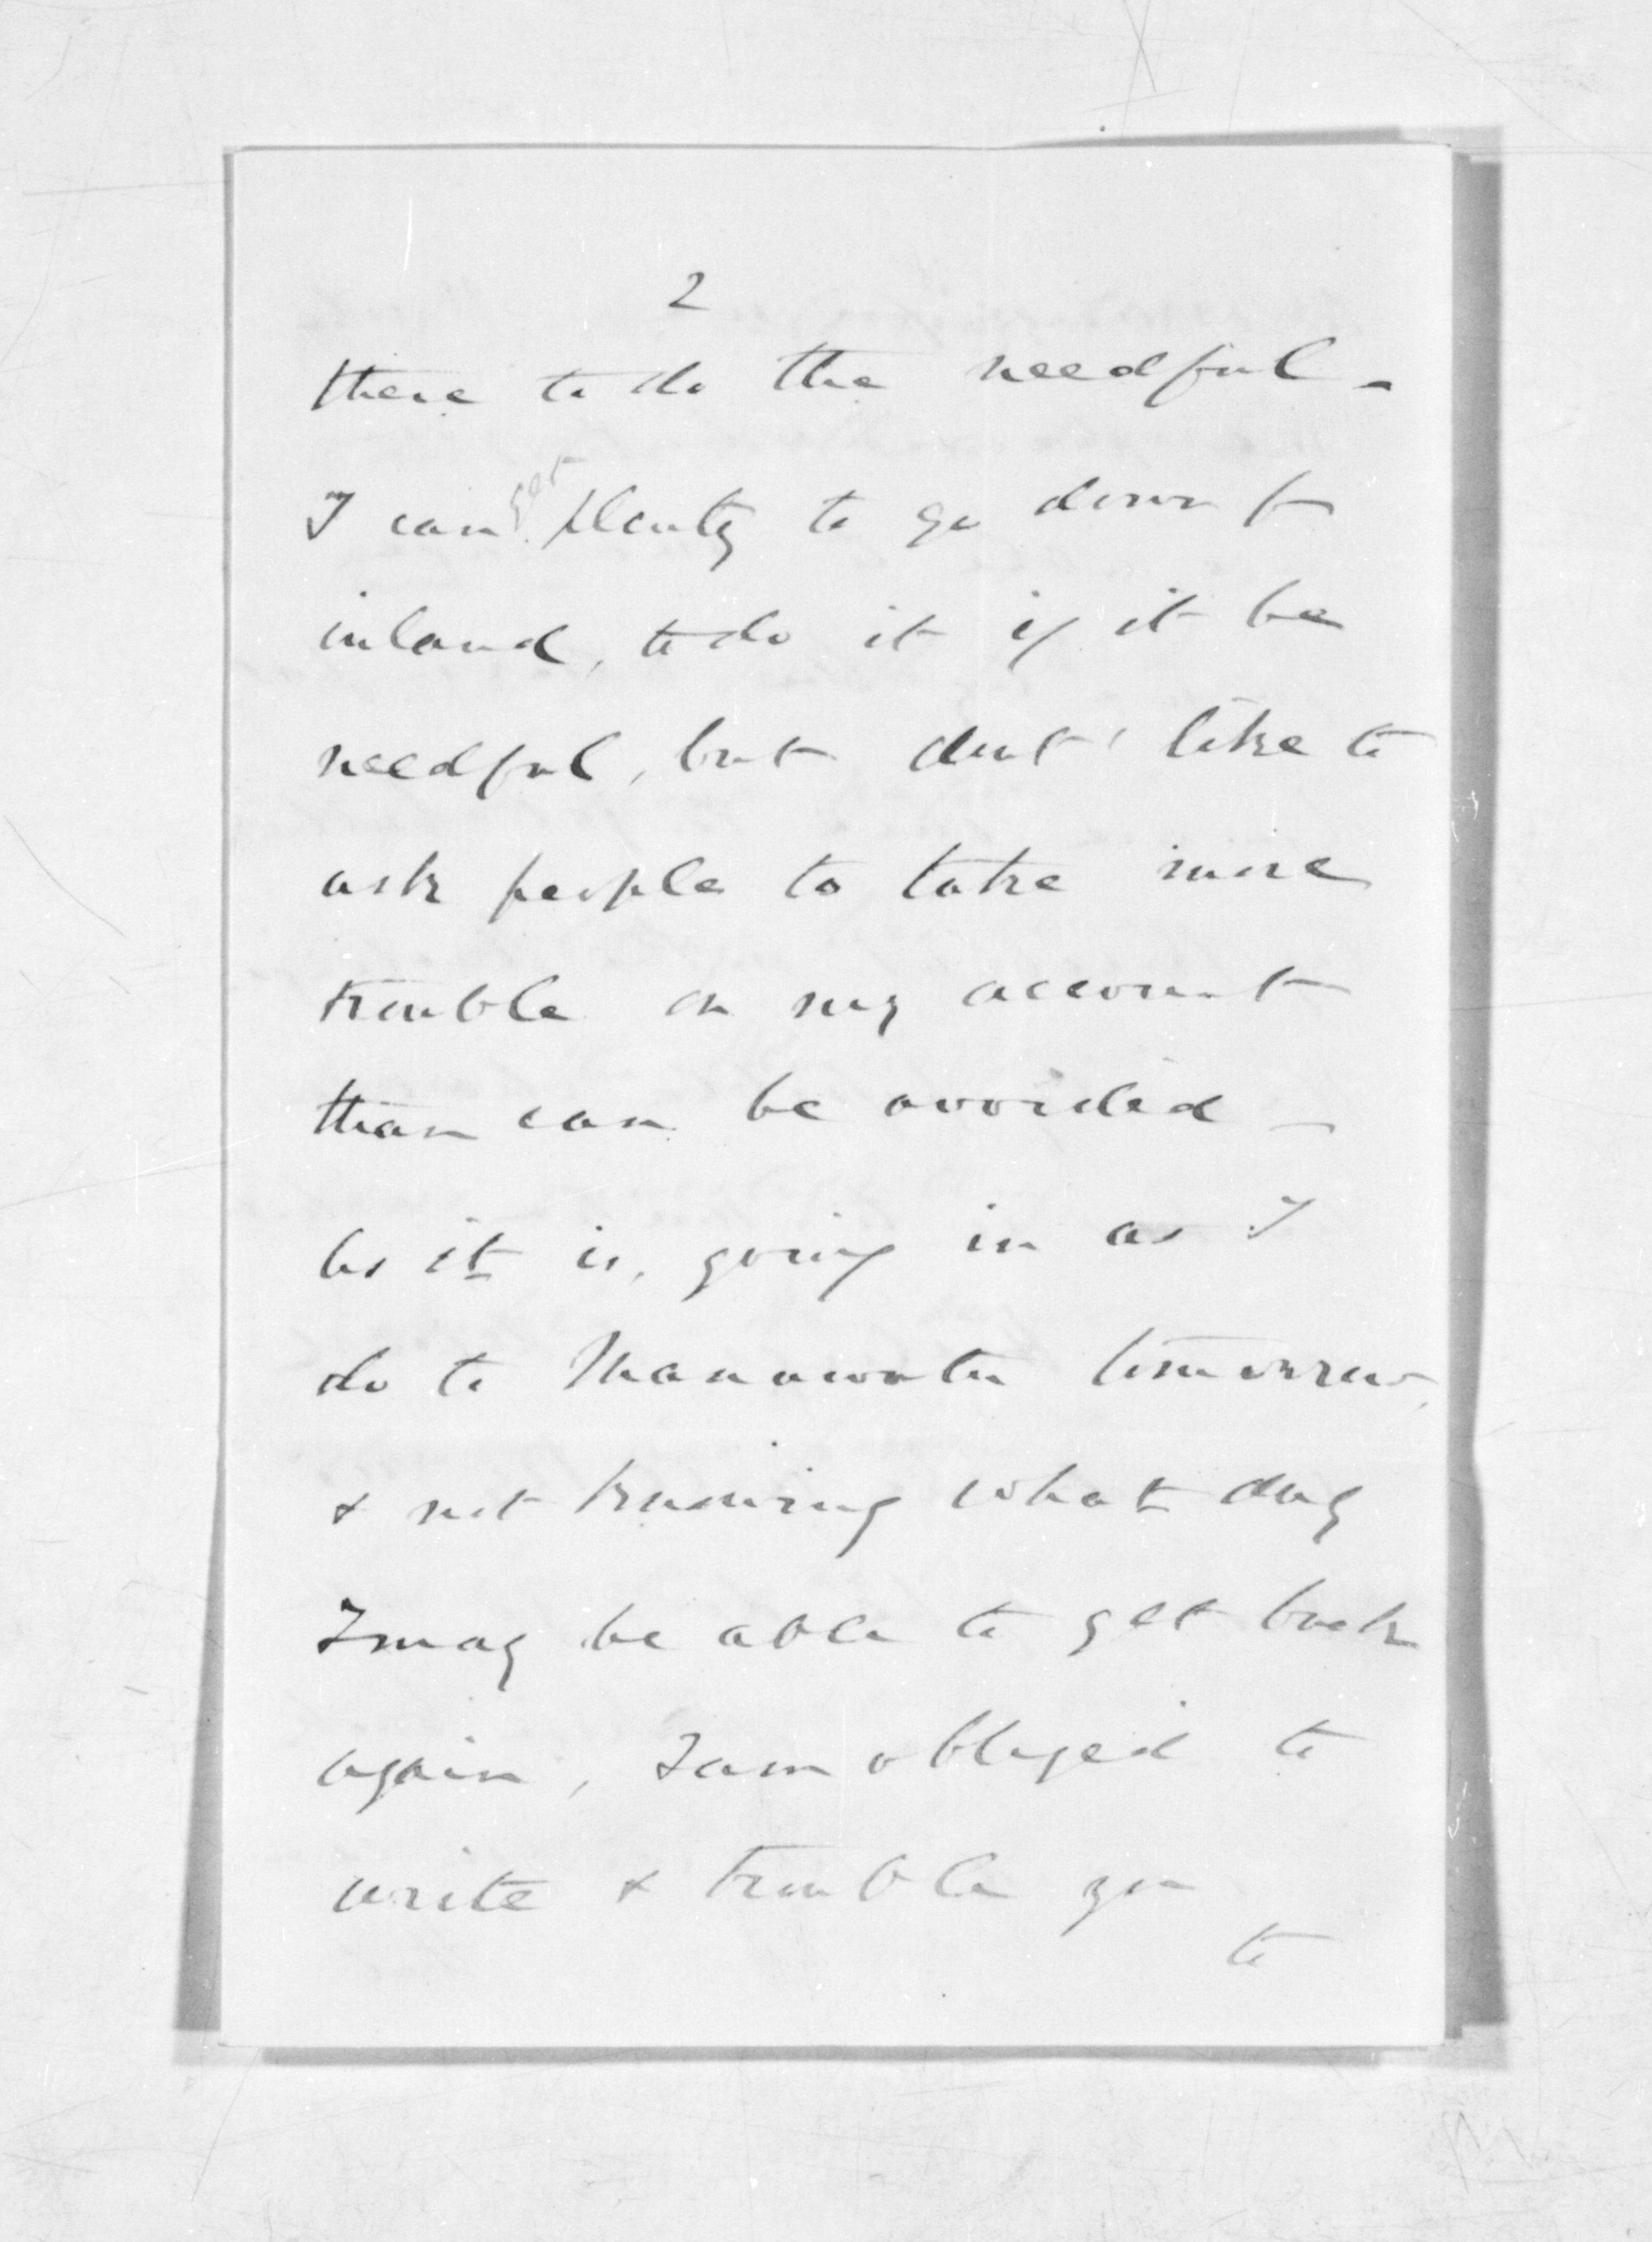 2
there to do the needful -
I can get plenty to go down fm
inland, to do it if it be
needful, but dont' like to
ask people to take more
trouble on my account
than can be avoided -
As it is, going in as I
do to Manawatu tomorrow,
& not knowing what day
I may be able to get back
again, I am obliged to
write & trouble you
to